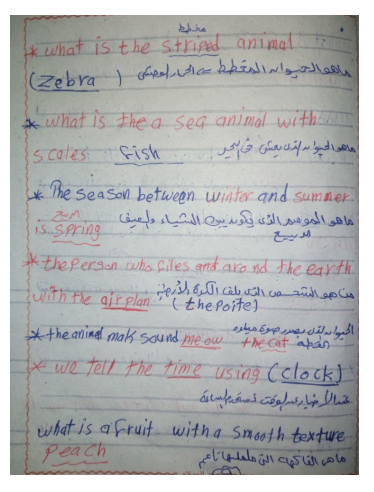 مخطط
* what is the striped animal
(Zebra) ماهو الحيوان المخطط
* what is the a sea animal with
scales fish ماهو الحيوان الذي يعيش في البحر
* The season between winter and summer
is spring ماهو الموسم الذي يكون بين الشتاء والصيف
ربيع
* the person who flies and around the earth
with the airplan من هو الشخص الذي يلف الكرة الأرضية
(the poite)
* the animal mak sound meow the cat الحيوان الذي يصدر صوت
القطة
* we tell the time using (clock)
what is a fruit with a smooth texture
peach ماهي الفاكهة التي ملمسها ناعم